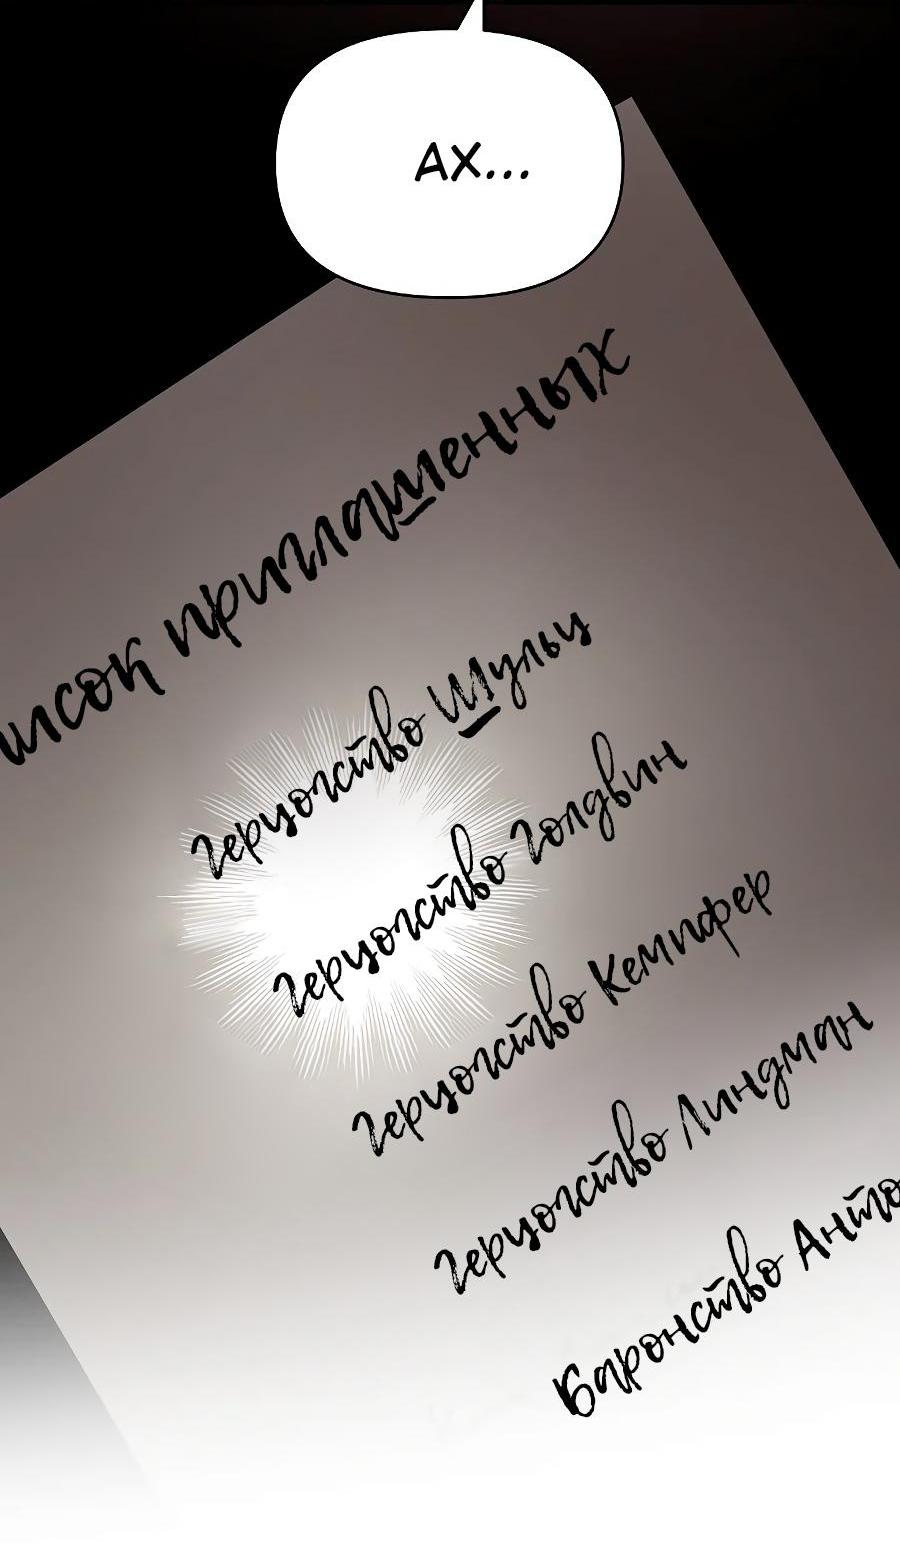 АХ...
исок приглашенных
Герцогство Шульц
Герцогство Голдвин
Герцогство Кемпфер
Герцогство Линдман
Баронство Анто